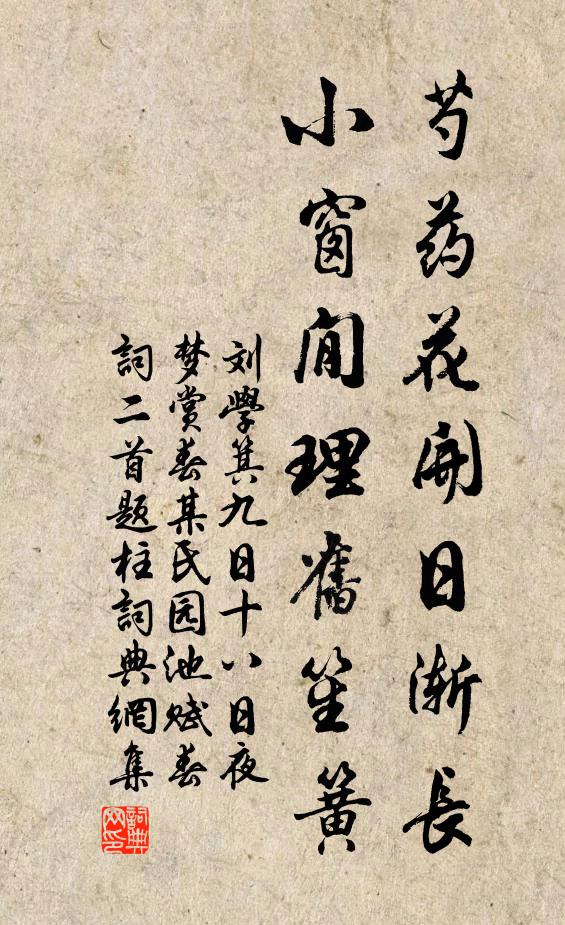 芍药花开日渐长
小窗闲理舊笙簧
刘學箕九日十八日夜
梦赏春某氏园池赋春
詞二首题柱詞典網集
詞典
网印